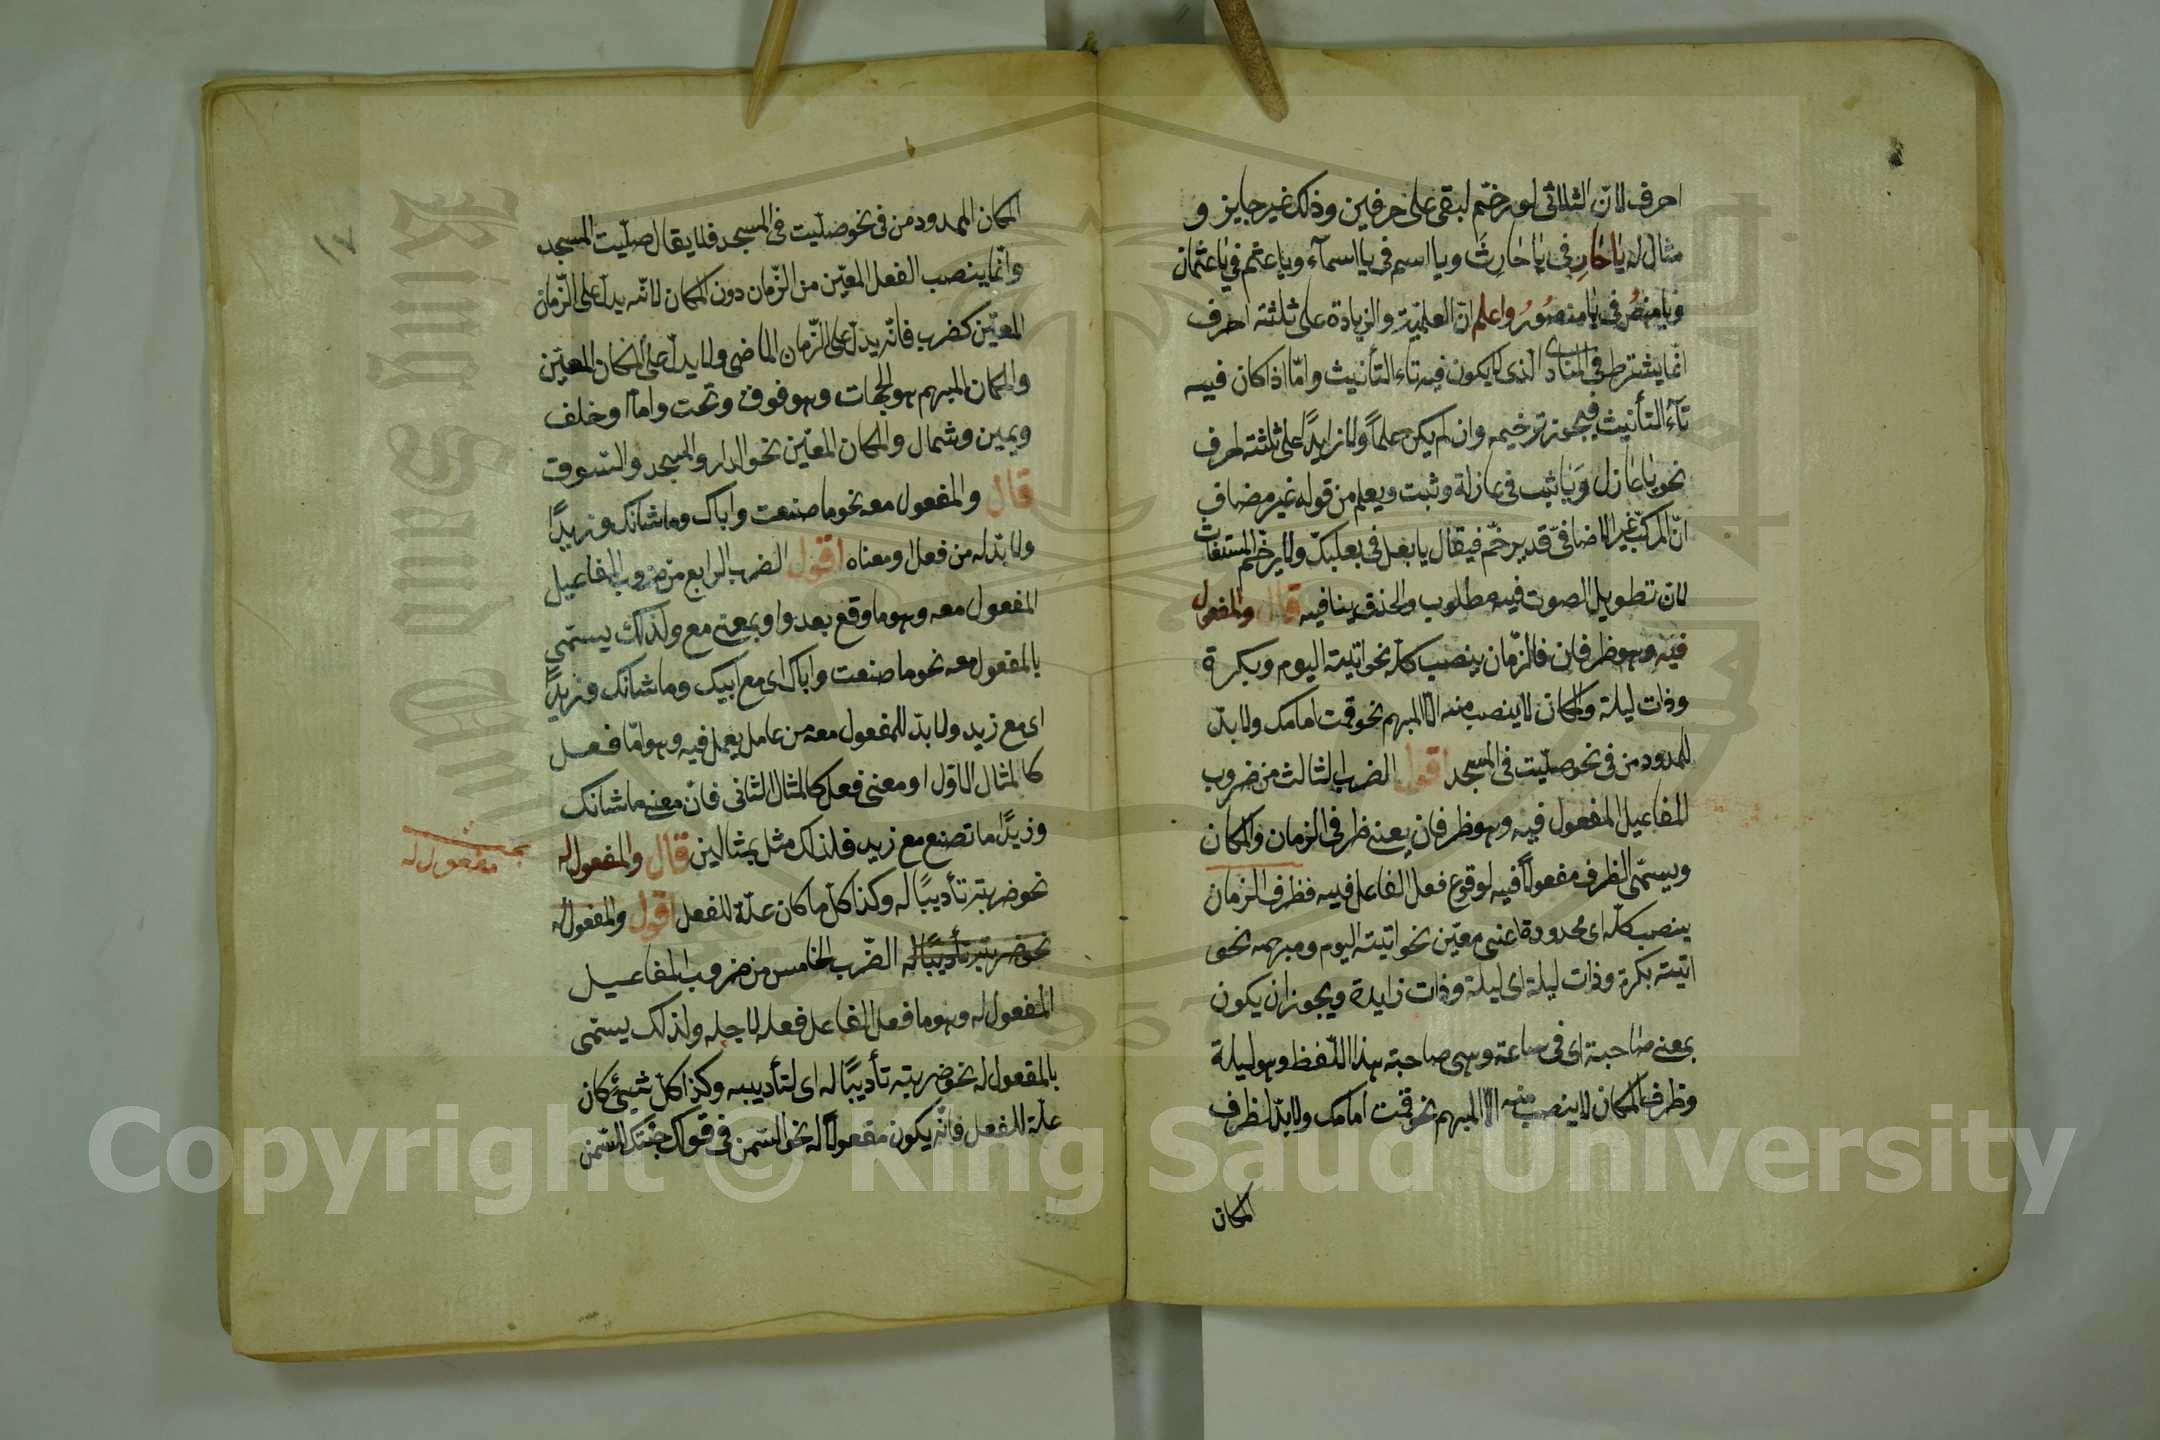 احرف لانّ الثلاثى لو رخّم لبقى على حرفين وذلك غير جايز و
مثال له يا حَارِ فى يا حارِثُ ويا اسم فى يا اسمآء ويا عثم فى يا عثمان
ويا منصُ فى يا منصُورُ واعلم انّ العلميّة والزيادة على ثلثة احرف
انّما يشترط فى المنادى الّذى لا يكون فيه تاء التأنيث وامّا اذا كان فيه
تآء التأنيث فيجوز ترخيمه وان لم يكن علماً ولا زايدًا على ثلثة احرف
نحو يا عاذل وَيا ثب فى عاذلة وثبت ويعلم من قوله غير مضاف
انّ المركّب غير الاضافىّ قد يرخّم فيقال يا بعل فى بعلبكّ ولا يرخّم المستغاث
لانّ تطويل الصوت فيه مطلوب والحذف ينافيه قال والمفعول
فيه وهو ظرفان فالزّمان ينصب كلّه نحو اتيته اليوم وبكرة
وذات ليلة والمكان لا ينصب منه الّا المبهم نحو قمت امامك ولا بدّ
للمدود من فى نحو صلّيت فى المسجد اقول الضرب الثالث من ضروب
المفاعيل المفعول فيه وهو ظرفان يعنى ظرفى الزمان والمكان
ويسمّى الظرف مفعولاً فيه لوقوع فعل الفاعل فيه فظرف الزمان
ينصب كلّه اى محدودة اعنى معيّن نحو اتيته اليوم ومبهمه نحو
اتيته بكرة وذات ليلة اى ليلة وذات زايدة ويجوز ان يكون
بمعنى صاحبة اى فى ساعة وهى صاحبة هذا اللّفظ وهو ليلة
وظرف المكان لا ينصب منه الّا المبهم نحو قمت امامك ولا بدّ لظرف
المكان
١٧
المكان الممدود من فى نحو صلّيت فى المسجد فلا يقال صلّيت المسجد
وانّما ينصب الفعل المعيّن من الزّمان دون المكان لانّه يدلّ على الزّمان
المعيّن كضرب فانّه يدلّ على الزّمان الماضى ولا يدلّ على المكان المعيّن
والمكان المبهم هو الجهات وهو فوق وتحت وامام وخلف
ويمين وشمال والمكان المعيّن نحو الدار والمسجد والسّوق
قال والمفعول معه نحو ما صنعت واباك وما شانك وزيدًا
ولا بدّ له من فعل او معناه اقول الضرب الرابع من ضروب المفاعيل
المفعول معه وهو ما وقع بعد واو بمعنى مع ولذلك يسمّى
بالمفعول معه نحو ما صنعت واباك اى مع ابيك وما شانك وزيدًا
اى مع زيد ولا بدّ للمفعول معه من عامل يعمل فيه وهو امّا فعل
كالمثال الاوّل او معنى فعل كالمثال الثانى فانّ معنى ما شانك
وزيدًا ما تصنع مع زيد فلذلك مثل بمثالين قال والمفعول له
نحو ضربته تأديبًا له وكذا كلّ ما كان علّة للفعل اقول والمفعول له
نحو ضربته تأديبًا له الضّرب الخامس من ضروب المفاعيل
المفعول له وهو ما فعل الفاعل فعله لاجله ولذلك يسمّى
بالمفعول له نحو ضربته تأديبًا له اى لتأديبه وكذا كلّ شيئ كان
علّة للفعل فانّه يكون مفعولاً له نحو السّمن فى قولك جئتك للسّمن
بحث
مفعول له
King Saud University
1957
Copyright © King Saud University